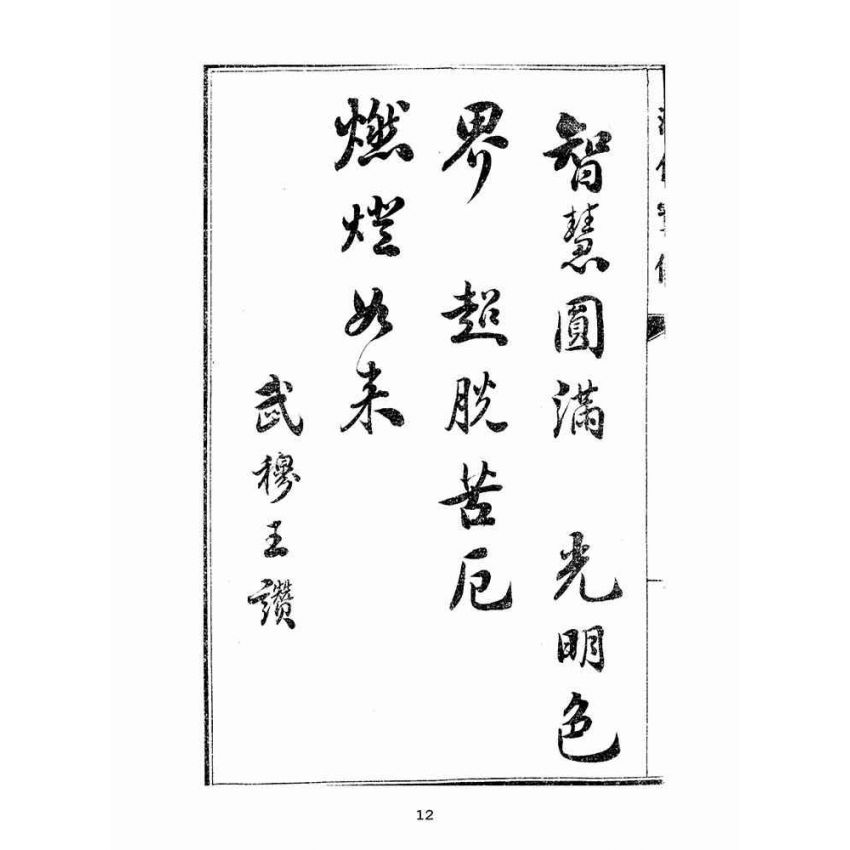 智慧圓滿　光明色
界　超脫苦厄
燃燈如来
武穆王讚
12